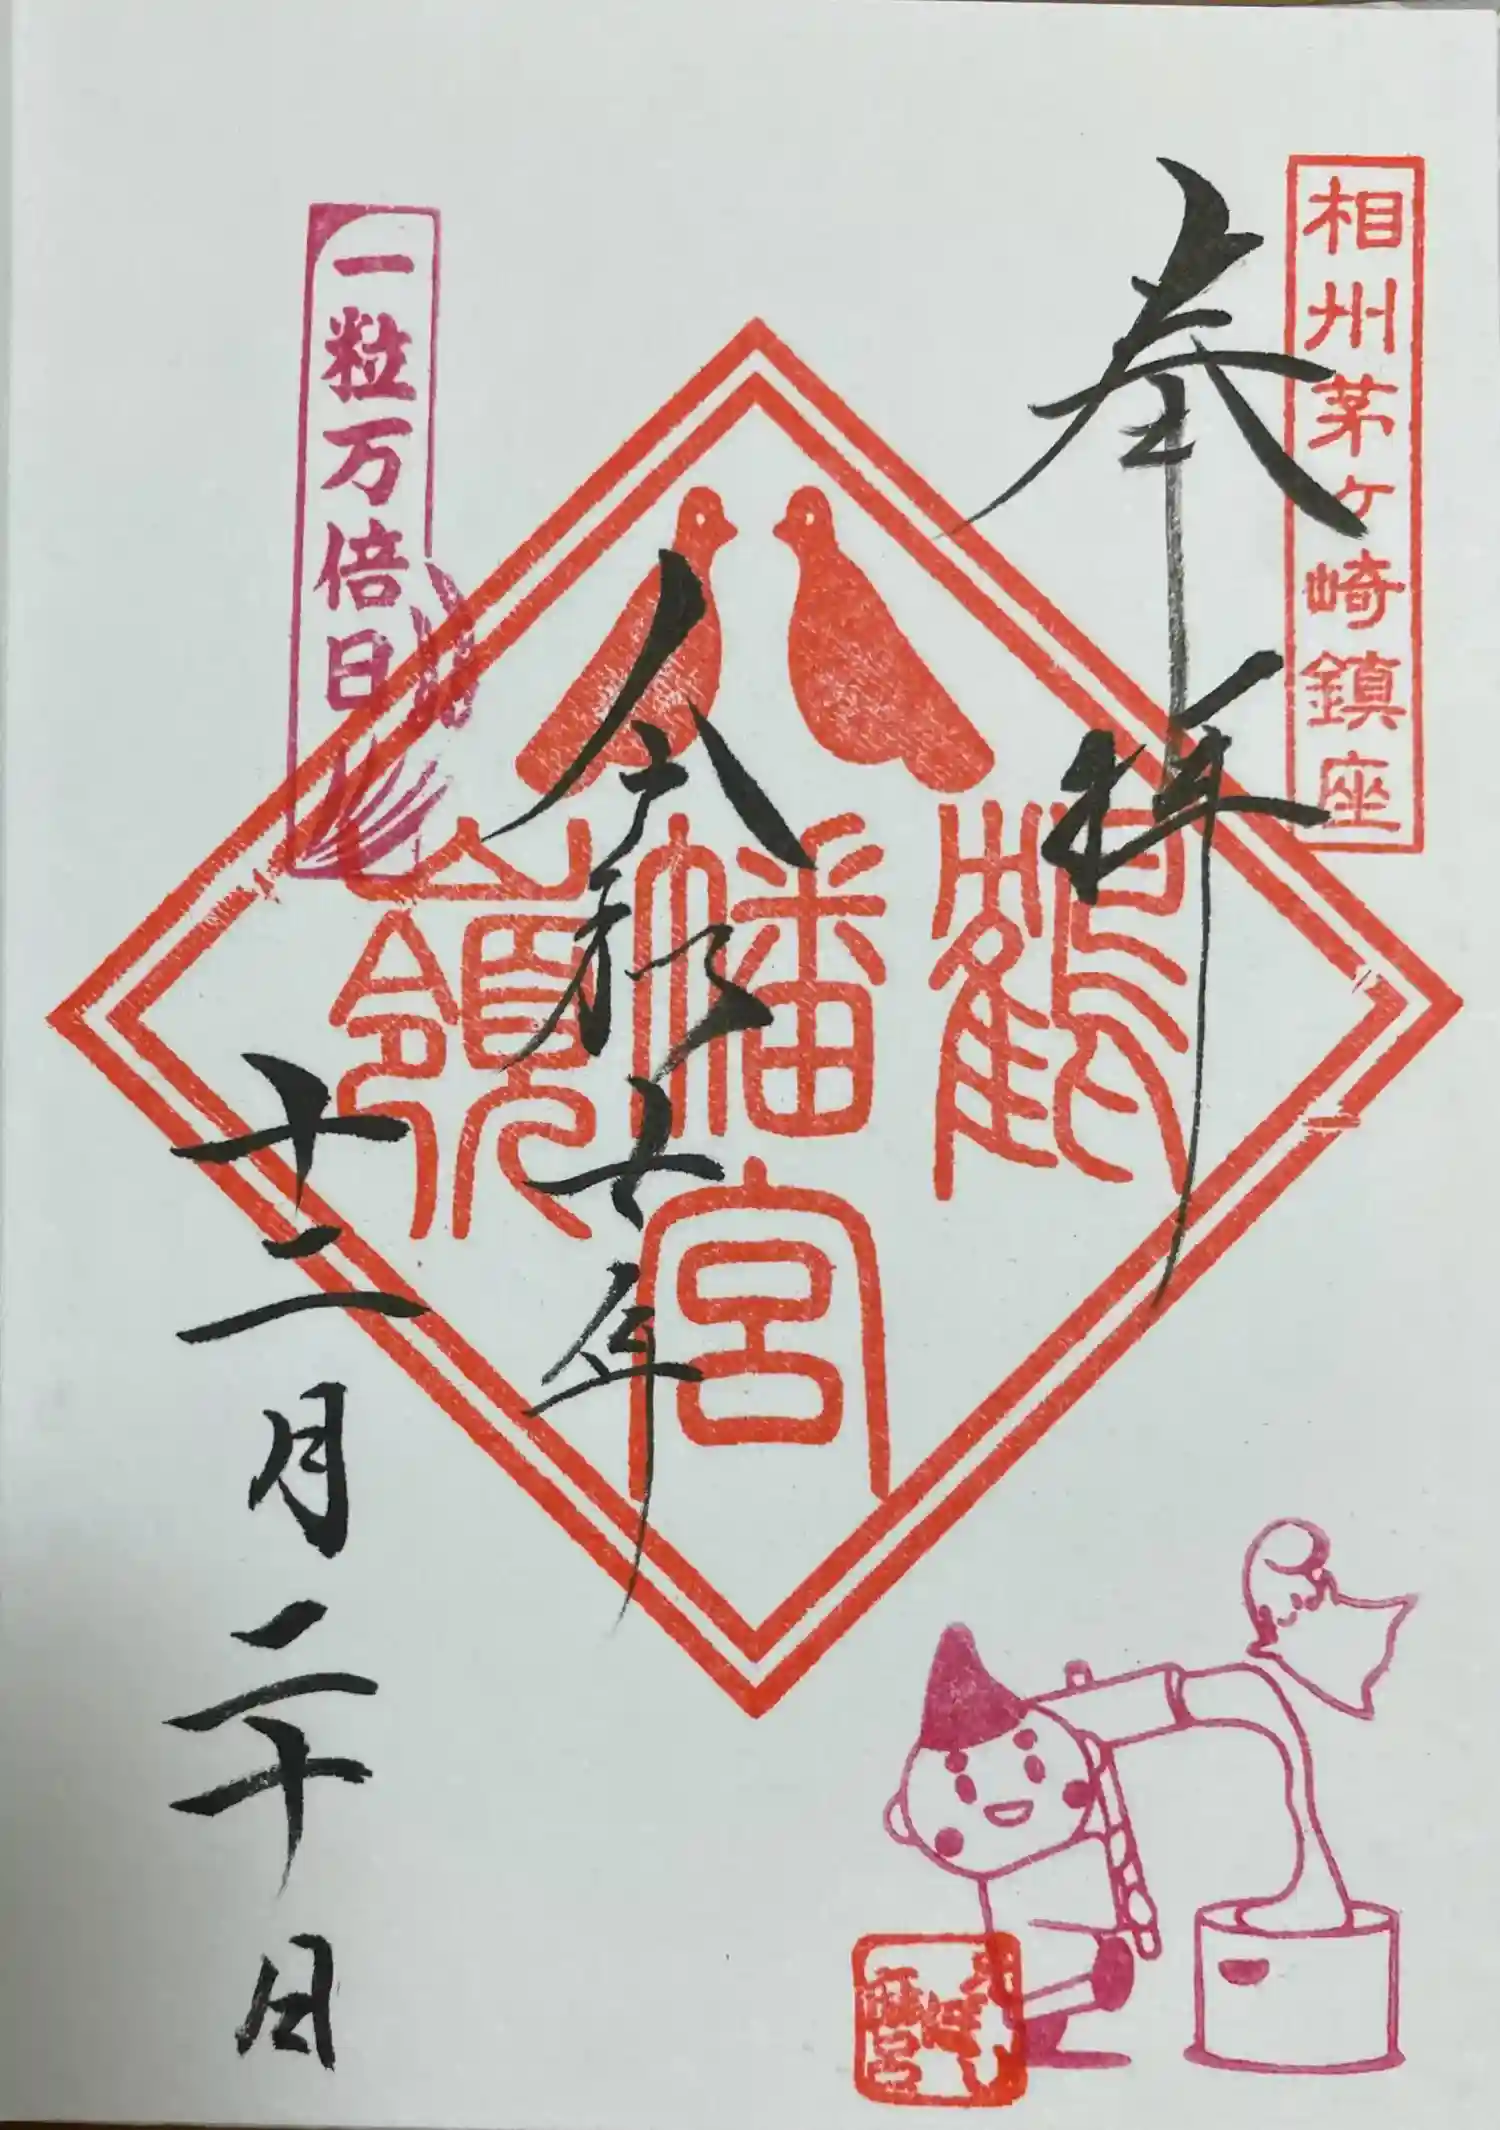 相州茅ヶ崎鎮座
奉拝
鶴
嶺
八幡
宮
令和七年
十二月二十日
一粒万倍日